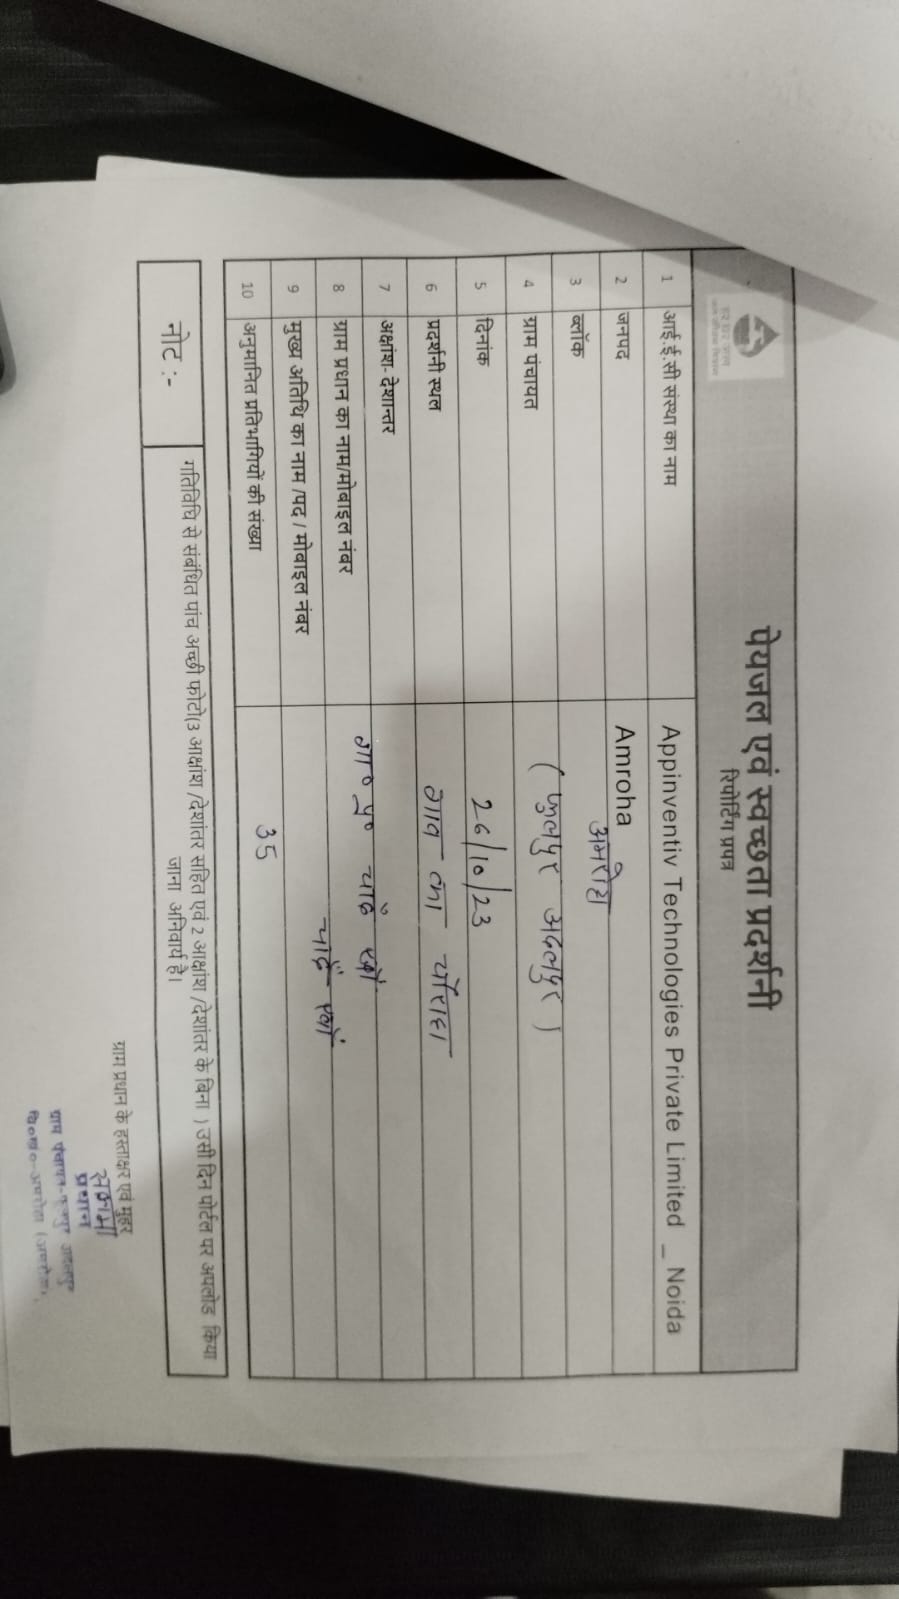 पेयजल एवं स्वच्छता प्रदर्शनी
रिपोर्टिंग प्रपत्र
1 आई.ई.सी संस्था का नाम Appinventiv Technologies Private Limited _ Noida
2 जनपद Amroha
3 ब्लॉक अमरोहा
4 ग्राम पंचायत (फुलपुर अदलपुर)
5 दिनांक 26/10/23
6 प्रदर्शनी स्थल गाव का चौराहा
7 अक्षांश- देशान्तर
8 ग्राम प्रधान का नाम/मोबाइल नंबर गा० पु० चाँद खाँ
9 मुख्य अतिथि का नाम /पद / मोबाइल नंबर चाँद खाँ
10 अनुमानित प्रतिभागियों की संख्या 35
नोट :- गतिविधि से संबंधित पांच अच्छी फोटो(3 आक्षांश /देशांतर सहित एवं 2 आक्षांश /देशांतर के बिना ) उसी दिन पोर्टल पर अपलोड किया
जाना अनिवार्य है।
ग्राम प्रधान के हस्ताक्षर एवं मुहर
प्रधान
ग्राम पंचायत-
वि०ख०-अमरोहा (अमरोहा)